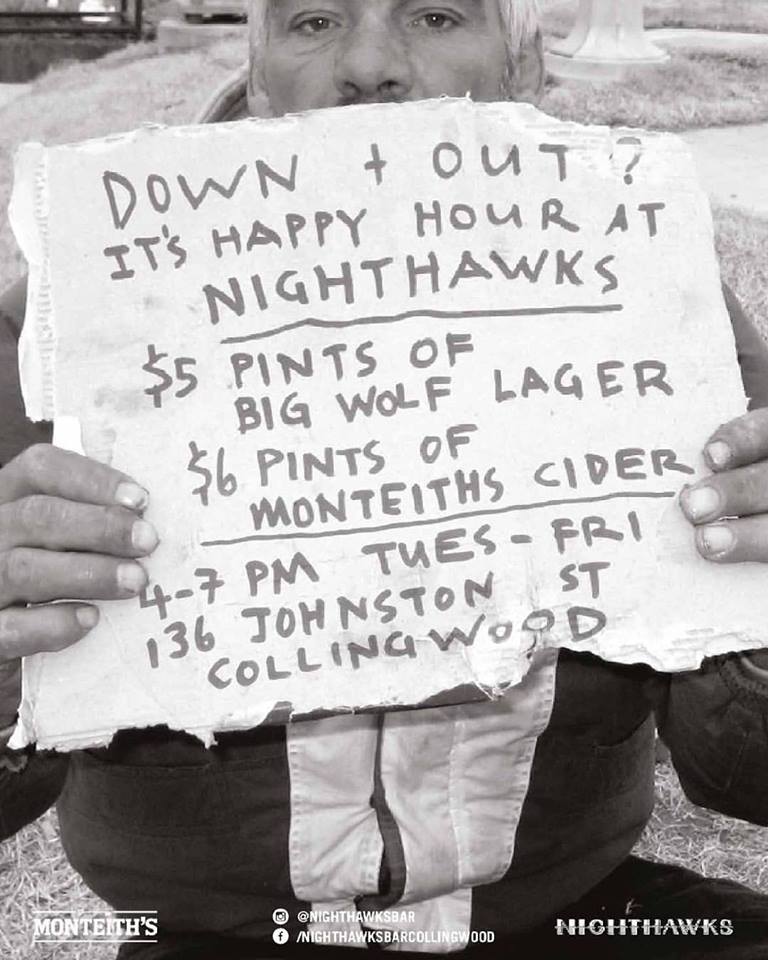 DOWN + OUT?
IT'S HAPPY HOUR AT
NIGHTHAWKS
$5 PINTS OF
BIG WOLF LAGER
$6 PINTS OF
MONTEITHS CIDER
4-7 PM TUES-FRI
136 JOHNSTON ST
COLLINGWOOD
MONTEITH'S
@NIGHTHAWKSBAR
/NIGHTHAWKSBARCOLLINGWOOD
NIGHTHAWKS